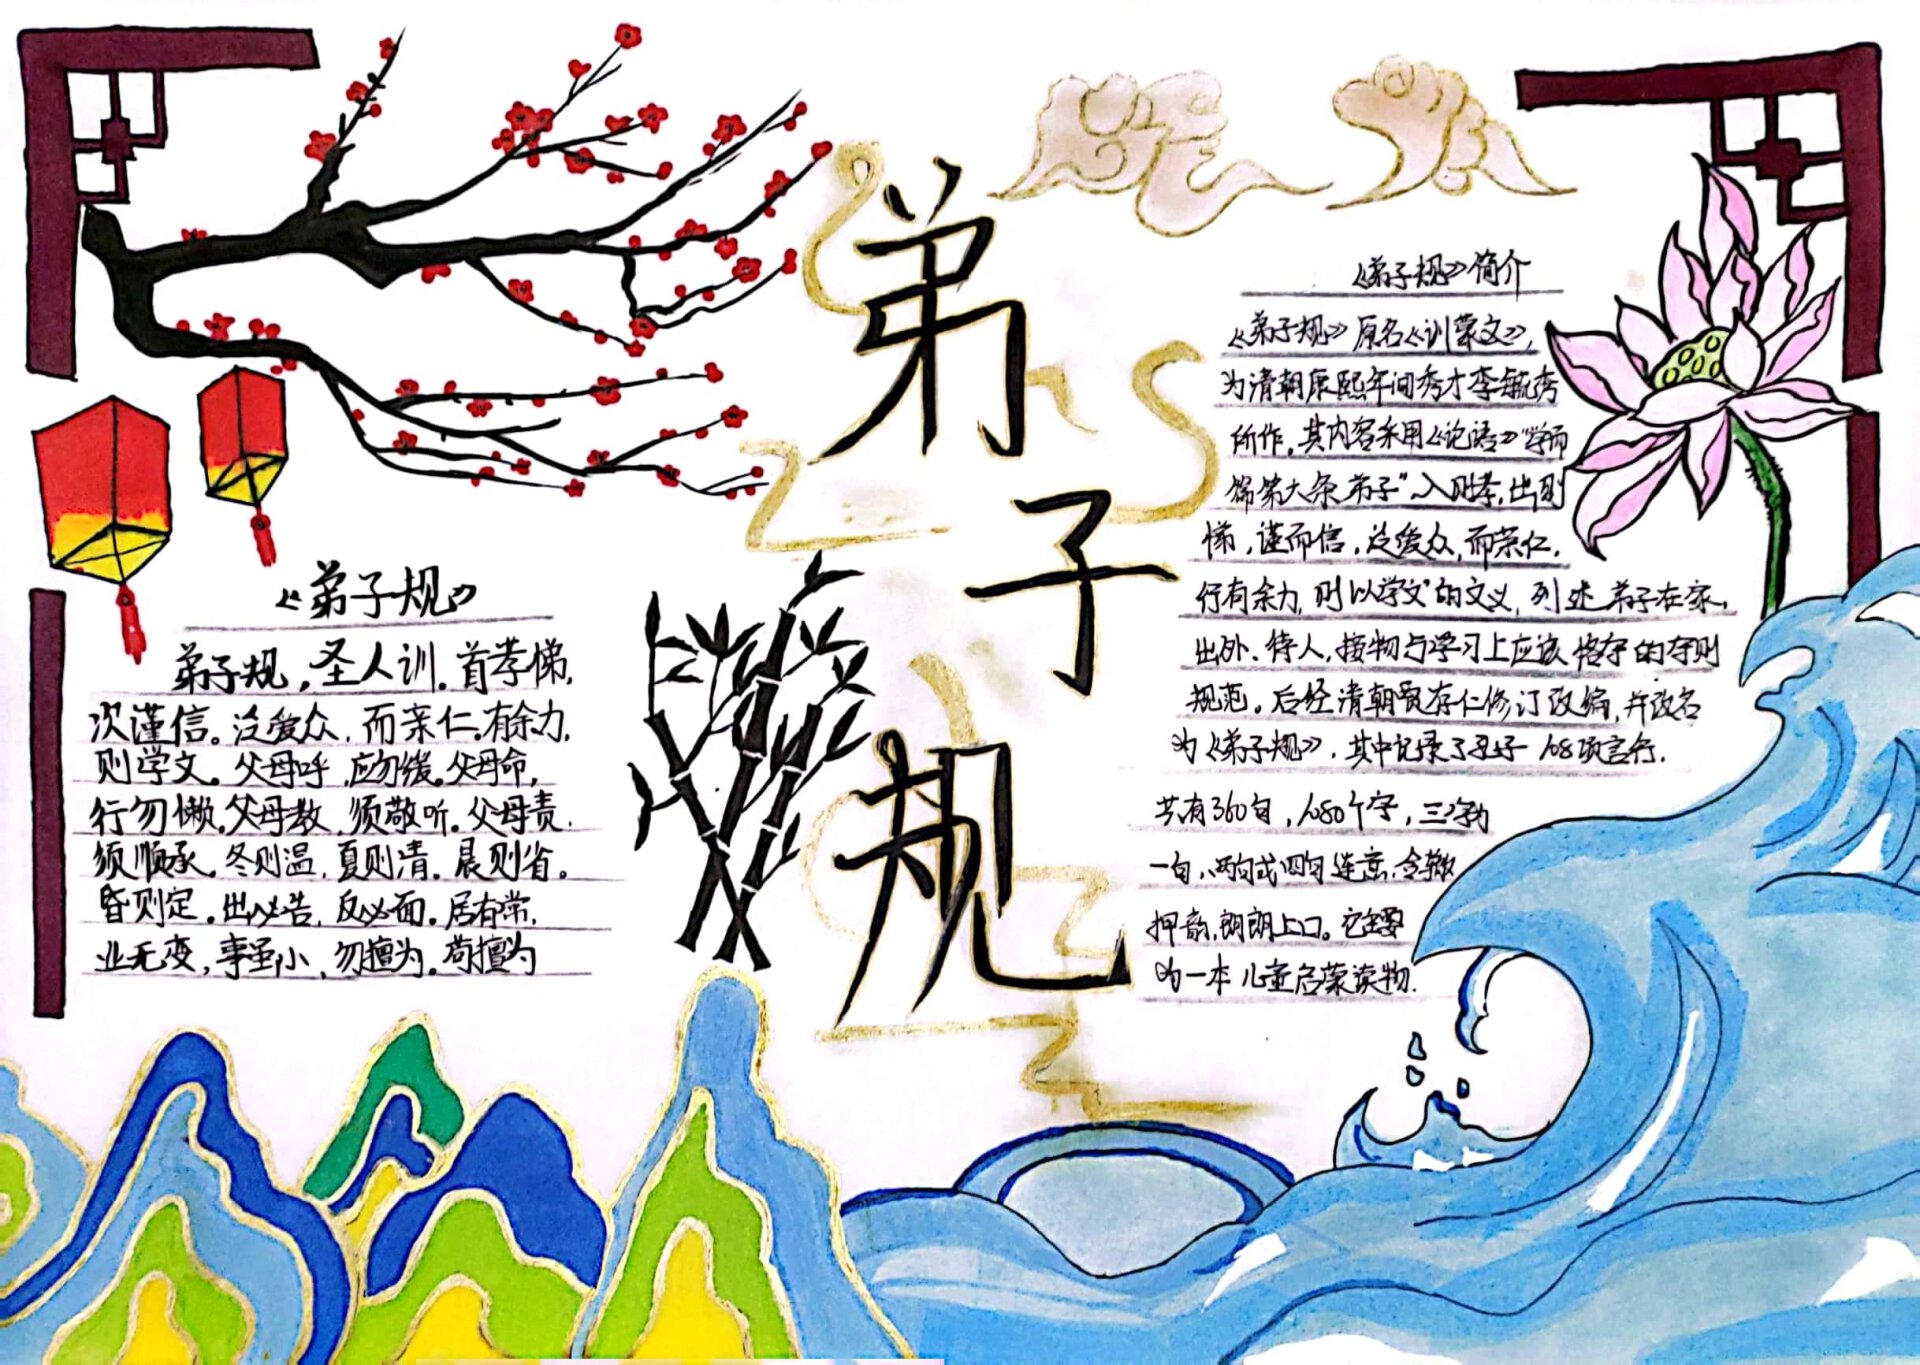 弟子规
《弟子规》
弟子规,圣人训。首孝悌,
次谨信。泛爱众,而亲仁。有余力,
则学文。父母呼,应勿缓。父母命,
行勿懒。父母教,须敬听。父母责,
须顺承。冬则温,夏则清。晨则省。
昏则定。出必告,反必面。居有常,
业无变,事虽小,勿擅为。苟擅为
《弟子规》简介
《弟子规》原名《训蒙文》,
为清朝康熙年间秀才李毓秀
所作,其内容采用《论语》“学而
篇第六条弟子”入则孝,出则
悌,谨而信,泛爱众,而亲仁,
行有余力,则以学文”的文义,列述弟子在家,
出外、待人,接物与学习上应该恪存的守则
规范。后经清朝贾存仁修订改编,并改名
为《弟子规》,其中记录了孔子108项言行.
共有360句,1080个字,三字
一句,两句或四句连意,合辙
押韵,朗朗上口。它主要
为一本儿童启蒙读物.